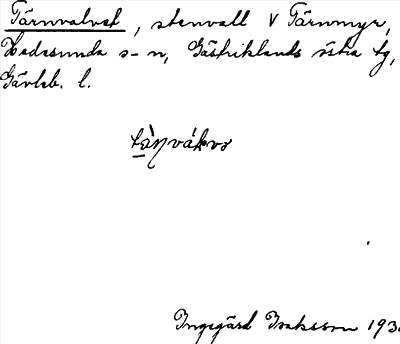 Tärnvalvet, stenvall V Tärnmyr,
Hedesunda s-n, Gästriklands östra tg,
Gävleb. l.
Ingegärd Isaksson 193